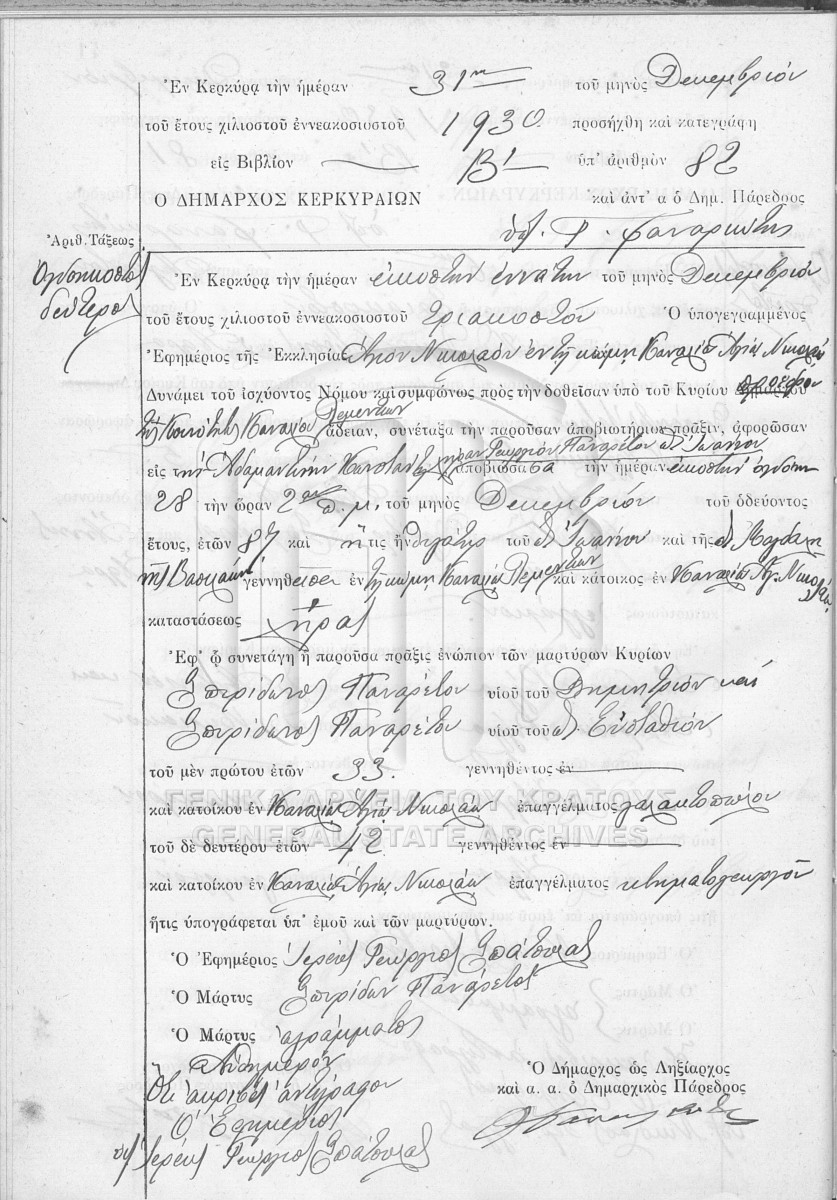 Ἐν Κερκύρᾳ τὴν ἡμέραν 31ην τοῦ μηνὸς Δεκεμβρίου
τοῦ ἔτους χιλιοστοῦ ἐννεακοσιοστοῦ 1930 προσήχθη καὶ κατεγράφη
εἰς Βιβλίον Β' ὑπ' ἀριθμὸν 82
Ὁ ΔΗΜΑΡΧΟΣ ΚΕΡΚΥΡΑΙΩΝ καὶ ἀντ' α ὁ Δημ. Πάρεδρος
Ἀριθ. Τάξεως
Ὀγδοηκοστὸς
δεύτερος
Ἐν Κερκύρᾳ τὴν ἡμέραν εἰκοστὴν ἐννάτην τοῦ μηνὸς Δεκεμβρίου
τοῦ ἔτους χιλιοστοῦ ἐννεακοσιοστοῦ τριακοστοῦ Ὁ ὑπογεγραμμένος
Ἐφημέριος τῆς Ἐκκλησίας Ἁγίου Νικολάου ἐν τῇ κώμῃ Καναλίων Ἁγίου Νικολάου
Δυνάμει τοῦ ἰσχύοντος Νόμου καὶ συμφώνως πρὸς τὴν δοθεῖσαν ὑπὸ τοῦ Κυρίου προέδρου
τῆς Κοινότητος Καναλίου ἄδειαν, συνέταξα τὴν παροῦσαν ἀποβιωτήριον πρᾶξιν, ἀφορῶσαν
εἰς τὴν Ἀδαμαντίνην χήραν Γεωργίου Παναρέτου Ἰωάννου ἀποβιώσασα τὴν ἡμέραν εἰκοστὴν ὀγδόην
28 τὴν ὥραν 2αν π.μ. τοῦ μηνὸς Δεκεμβρίου τοῦ ὁδεύοντος
ἔτους, ἐτῶν 87 καὶ ἥτις ἦν θυγάτηρ τοῦ Ἰωάννου καὶ τῆς
γεννηθεῖσα ἐν τῇ κώμῃ Καναλίων καὶ κάτοικος ἐν Καναλίων Ἁγ. Νικολάου
καταστάσεως χήρας
Ἐφ' ᾧ συνετάγη ἡ παροῦσα πρᾶξις ἐνώπιον τῶν μαρτύρων Κυρίων
Σπυρίδωνος Παναρέτου υἱοῦ τοῦ Δημητρίου καὶ
Σπυρίδωνος Παναρέτου υἱοῦ τοῦ Εὐσταθίου
τοῦ μὲν πρώτου ἐτῶν 33 γεννηθέντος ἐν
ΓΕΝΙΚΑ ΑΡΧΕΙΑ ΤΟΥ ΚΡΑΤΟΥΣ
καὶ κατοίκου ἐν Καναλίων Ἁγίου Νικολάου ἐπαγγέλματος γαλακτοπώλου
GENERAL STATE ARCHIVES
τοῦ δὲ δευτέρου ἐτῶν 42 γεννηθέντος ἐν
καὶ κατοίκου ἐν Καναλίων Ἁγίου Νικολάου ἐπαγγέλματος κτηματογεωργοῦ
ἥτις ὑπογράφεται ὑπ' ἐμοῦ καὶ τῶν μαρτύρων.
Ὁ Ἐφημέριος Ἱερεὺς Γεώργιος Σπάτουλας
Ὁ Μάρτυς Σπυρίδων Πανάρετος
Ὁ Μάρτυς ἀγράμματος
Αὐθημερόν
Ὅτι ἀκριβὲς ἀντίγραφον
Ὁ Ἐφημέριος
Ἱερεὺς Γεώργιος Σπάτουλας
Ὁ Δήμαρχος ὡς Ληξίαρχος
καὶ α. α. ὁ Δημαρχικὸς Πάρεδρος